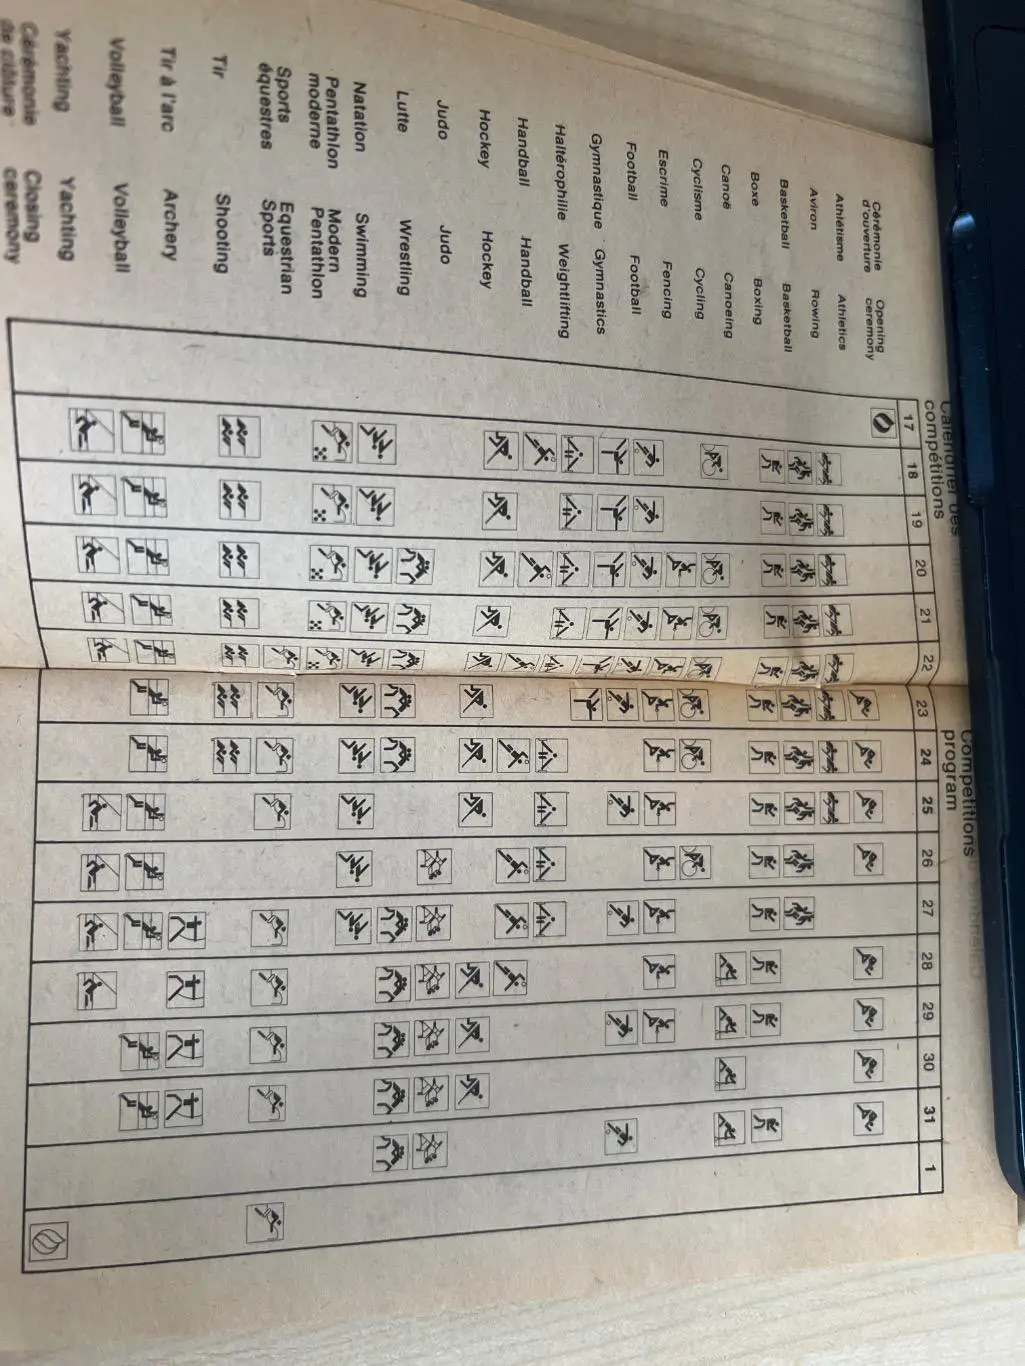 Calendrier des
compétitions
Competitions
program
17 18 19 20 21 22 23 24 25 26 27 28 29 30 31 1
Cérémonie
d'ouverture
Opening
ceremony
Athlétisme Athletics
Aviron Rowing
Basketball Basketball
Boxe Boxing
Canoë Canoeing
Cyclisme Cycling
Escrime Fencing
Football Football
Gymnastique Gymnastics
Haltérophilie Weightlifting
Handball Handball
Hockey Hockey
Judo Judo
Lutte Wrestling
Natation Swimming
Pentathlon
moderne
Modern
Pentathlon
Sports
équestres
Equestrian
Sports
Tir Shooting
Tir à l'arc Archery
Volleyball Volleyball
Yachting Yachting
Cérémonie
de clôture
Closing
ceremony